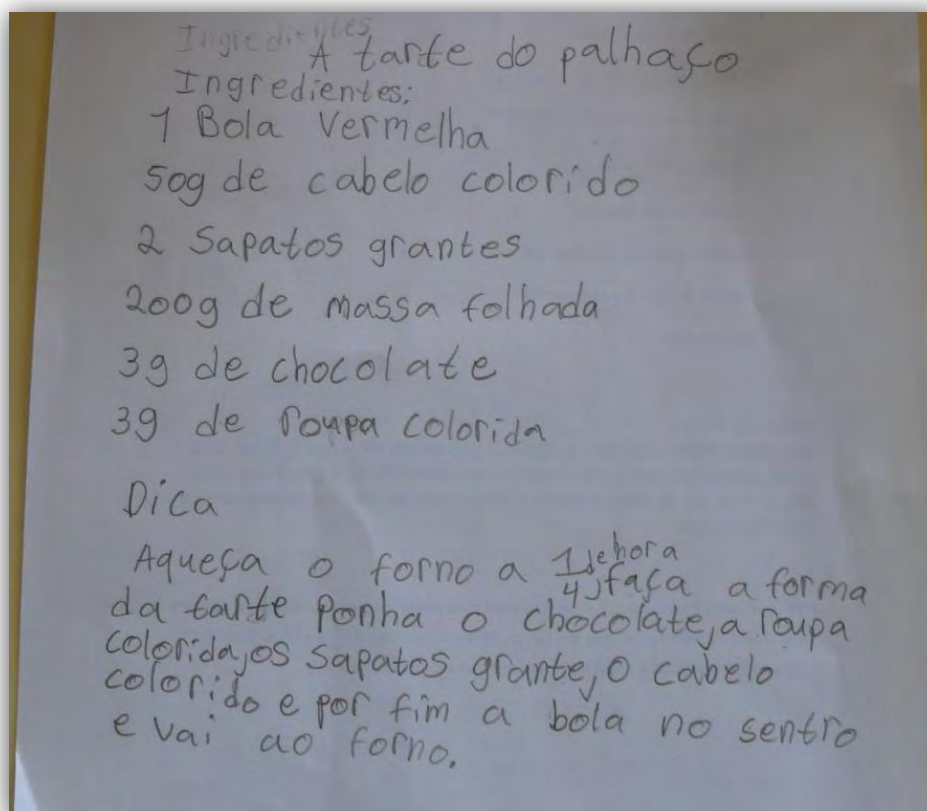 Ingredientes
A tarte do palhaço
Ingredientes:
1 Bola Vermelha
50g de cabelo colorido
2 Sapatos grantes
200g de massa folhada
3g de chocolate
3g de roupa colorida
Dica
Aqueça o forno a 1/4 de hora, faça a forma
da tarte Ponha o chocolate, a roupa
colorida, os sapatos grante, o cabelo
colorido e por fim a bola no sentro
e vai ao forno.